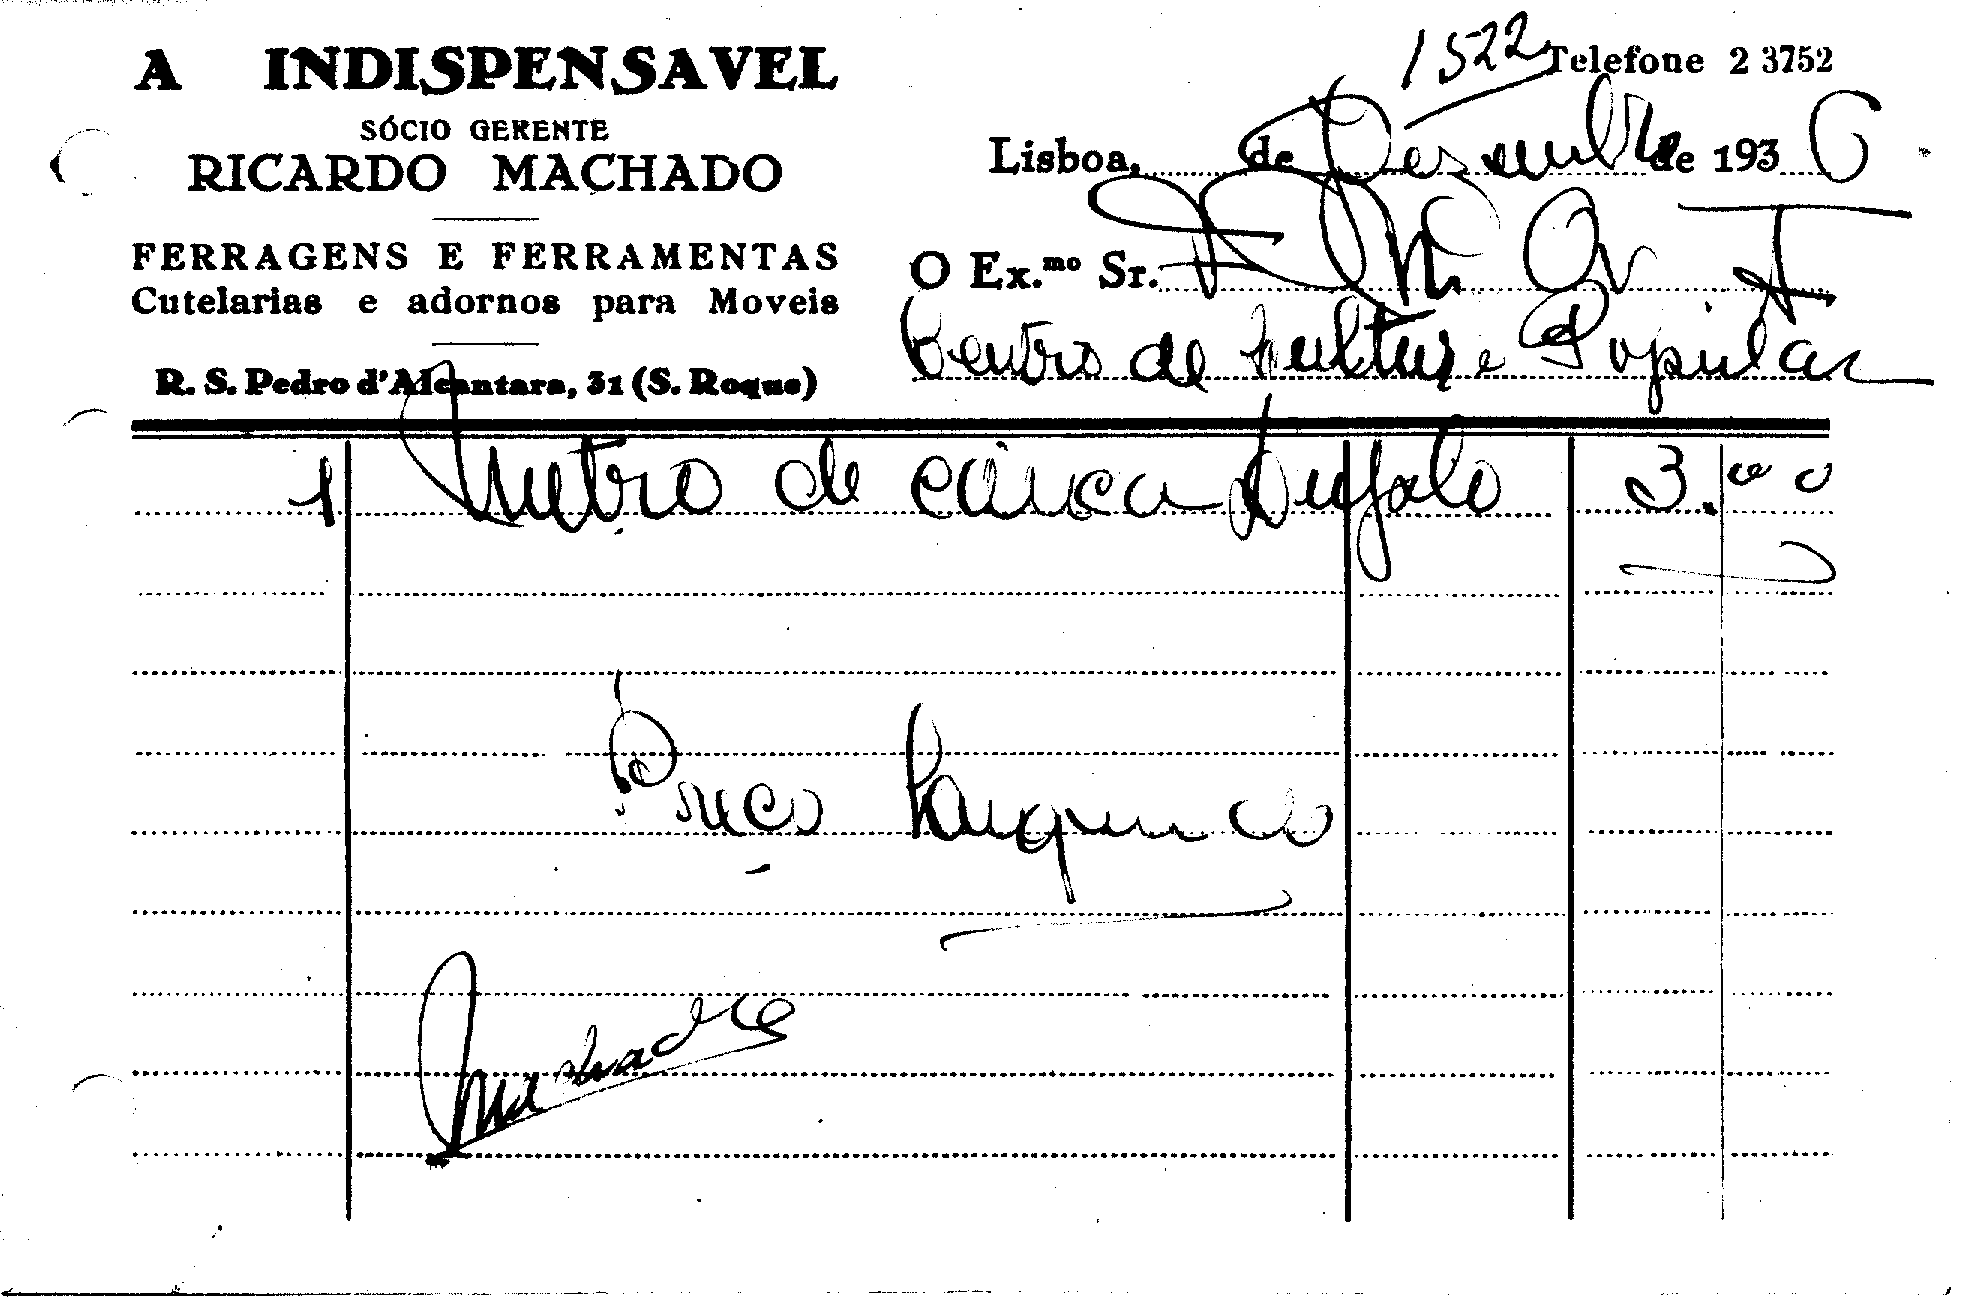 A INDISPENSAVEL
SÓCIO GERENTE
RICARDO MACHADO
FERRAGENS E FERRAMENTAS
Cutelarias e adornos para Moveis
R. S. Pedro d'Alcantara, 31 (S. Roque)
1522
Telefone 2 3752
Lisboa, de Dezembro de 1936
O Ex.mo Sr.
Centro de Cultura Popular
1 metro de Bufalo 3.00
Preço
Machado